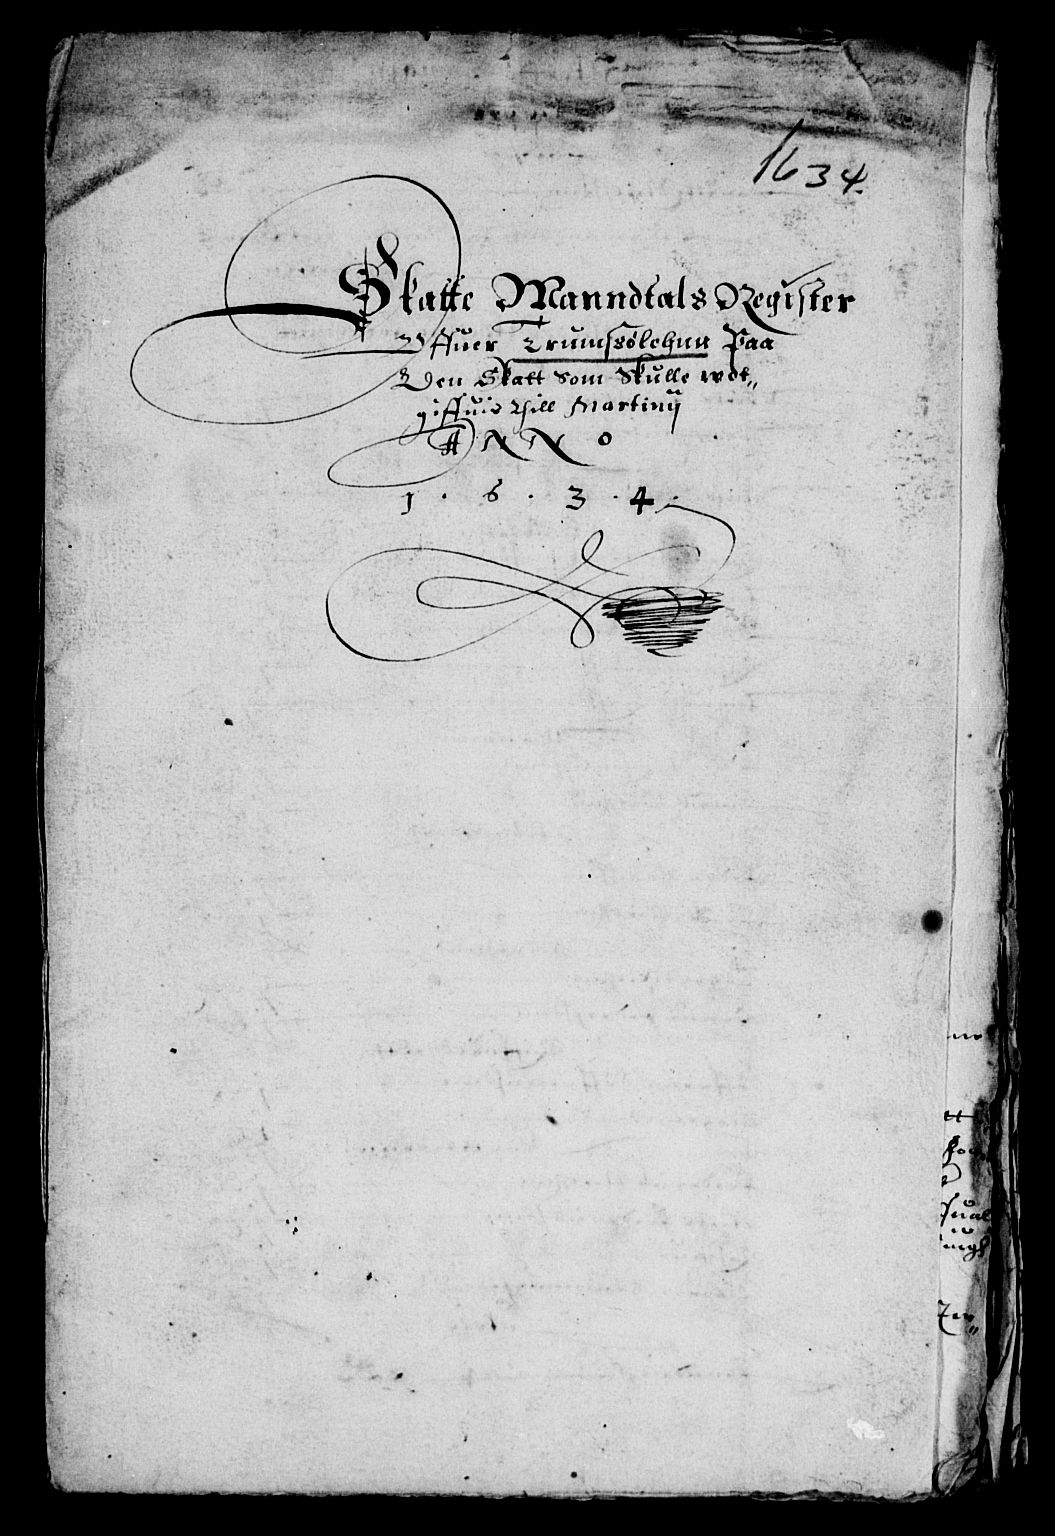 1634.
Skatte Manndtals Register
Offuer Trumssølehnn Paa
Den Skatt Som Skulle wdt„
giffuis thill Martinij
ANNO
1 . 6 . 3 . 4 .
tt